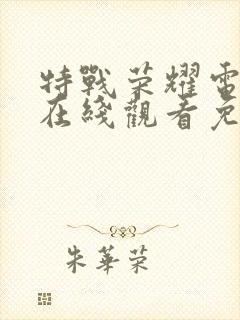 特戰荣耀電
在綫觀看免
朱華荣